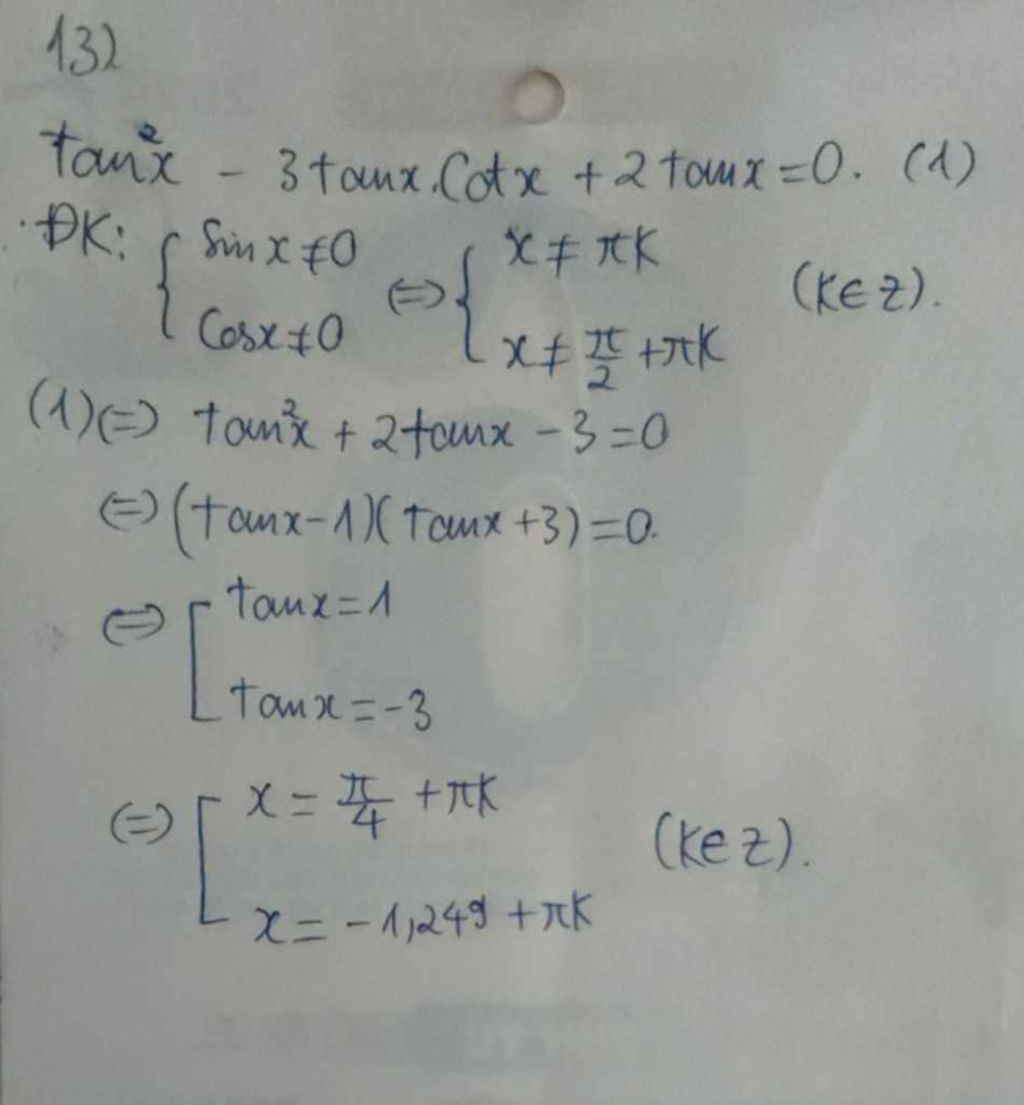 132
tan²x - 3tanx.Cotx + 2tanx=0. (1)
ĐK: { sinx≠0 ⇔ { x ≠ πK (K∈Z).
Cosx≠0 x ≠ π/2 +πK
(1)⇔ tan²x + 2tanx - 3=0
⇔ (tanx-1)(tanx+3)=0.
⇔ [ tanx=1
tanx=-3
⇔ [ x= π/4 +πK (K∈Z).
x= -1,249 +πK